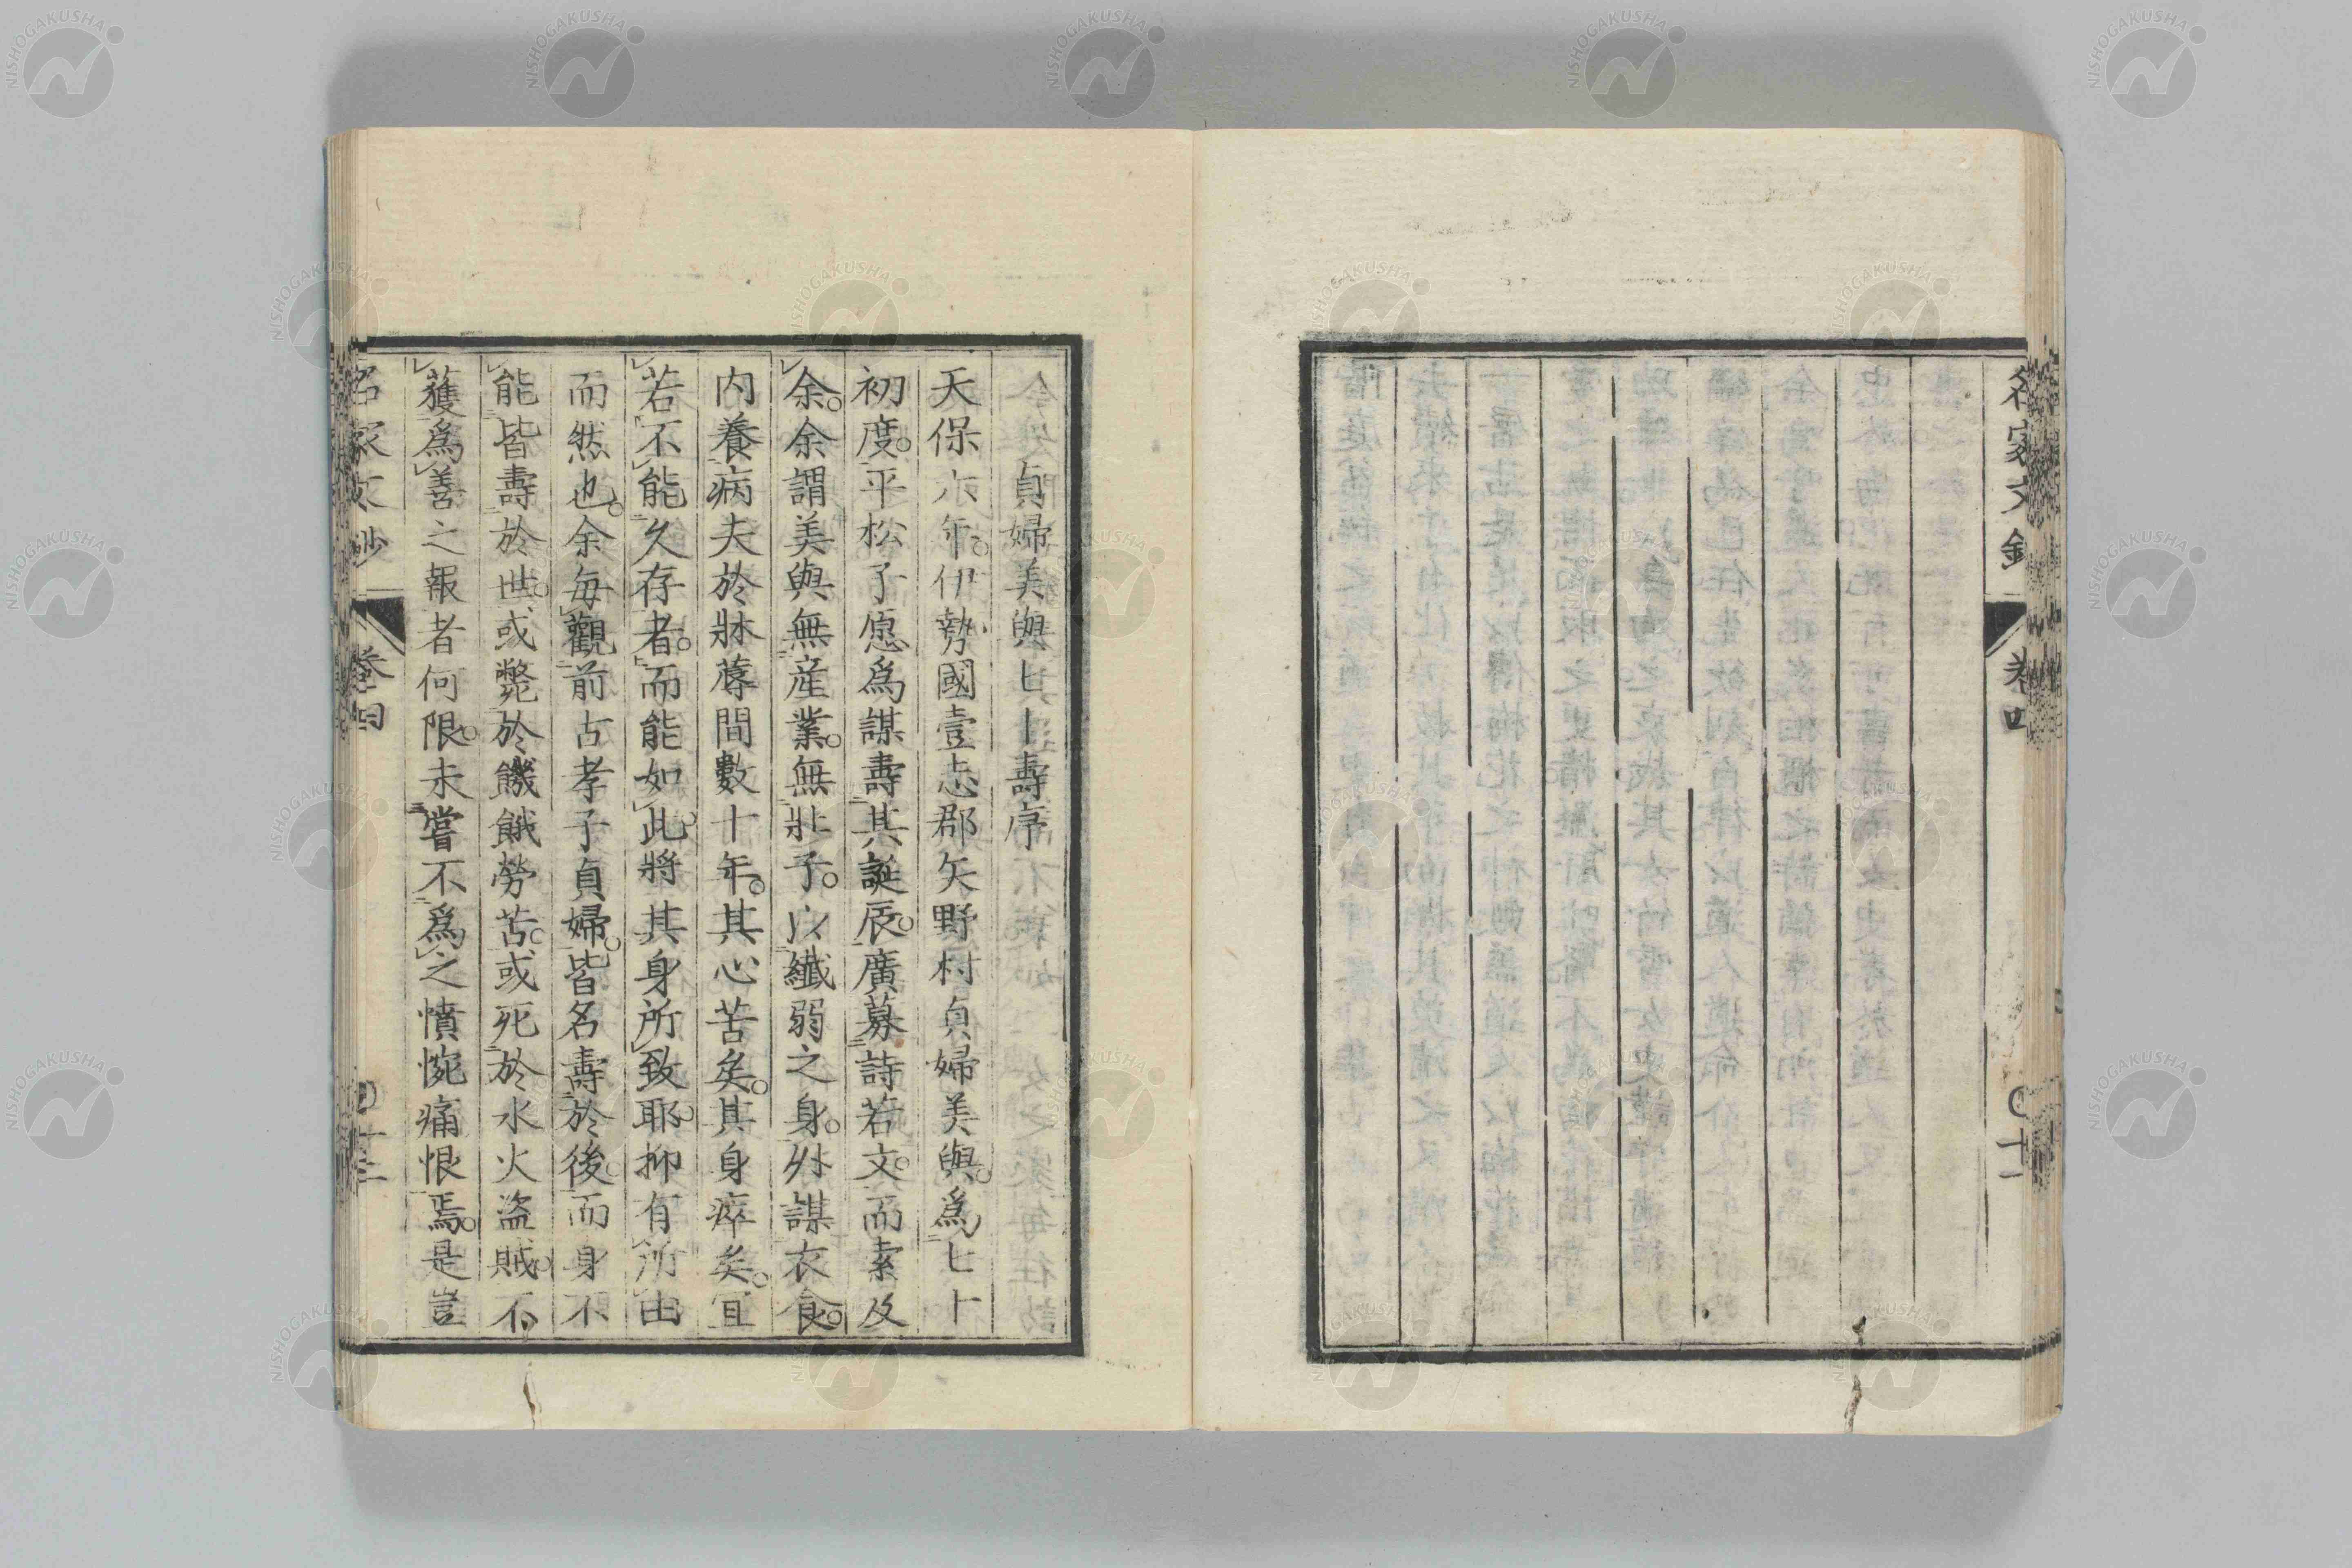 名家文鈔
卷四
貞婦美與七十壽序
天保六年。伊勢國壹志郡矢野村貞婦美與。爲七十
初度。平松子愿爲謀壽其誕辰。廣募詩若文。而索及
余。余謂美與無産業。無壯子。以纖弱之身。外謀衣食。
内養病夫於牀蓐間數十年。其心苦矣。其身瘁矣。宜
若不能久存者。而能如此。將其身所致耶。抑有所由
而然也。余每觀前古孝子貞婦。皆名壽於後。而身不
能皆壽於世。或斃於饑餓勞苦。或死於水火盜賊。不
獲爲善之報者何限。未嘗不爲之憤惋痛恨焉。是豈
名家文鈔
卷四